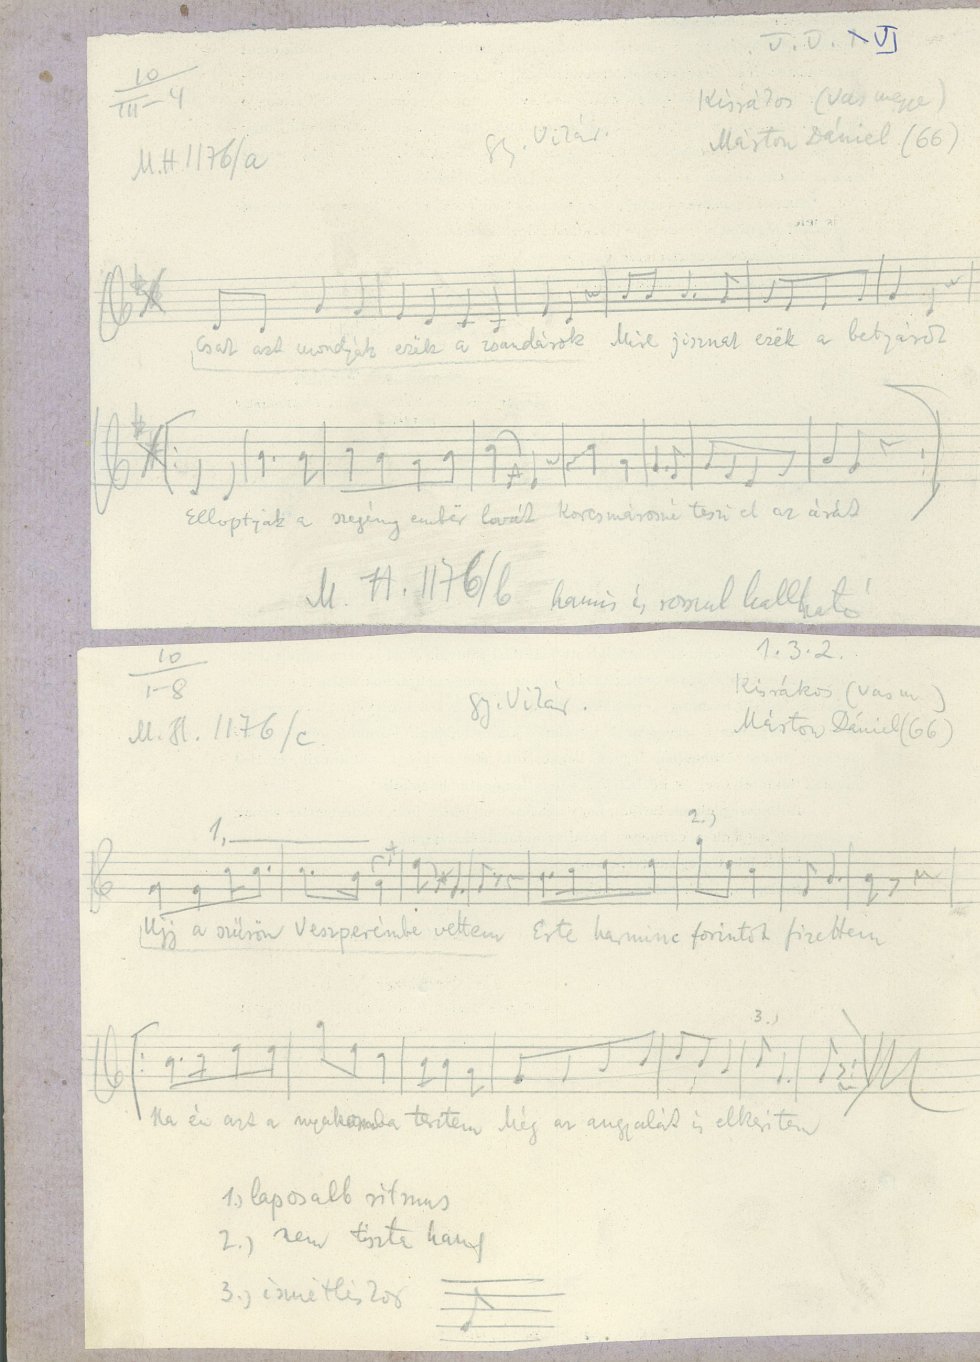 V. V. VI
10
III-4
Kisrákos (Vas megye)
M.H 1176/a
gy. Vikár.
Márton Dániel (66)
Csak azt mondják ezék a zsandárok Mire jisznak ezék a betyárok
Elloptják a szegény embër lovát Korcsmárosné teszi el az árát
M. H. 1176/b hamis és rosszul hallható
10
I-8
1.3.2.
Kisrákos (Vas m.)
M.H. 1176/c
gy. Vikár.
Márton Dániel (66)
1,
2.)
Ujj a szűröm Veszperémbe vettem Érte harminc forintot fizettem
3.)
Ha én azt a nyakamba teritem Még az angyalát is elkésitem
1.) laposabb ritmus
2.) nem tiszta hang
3.) ismétléskor